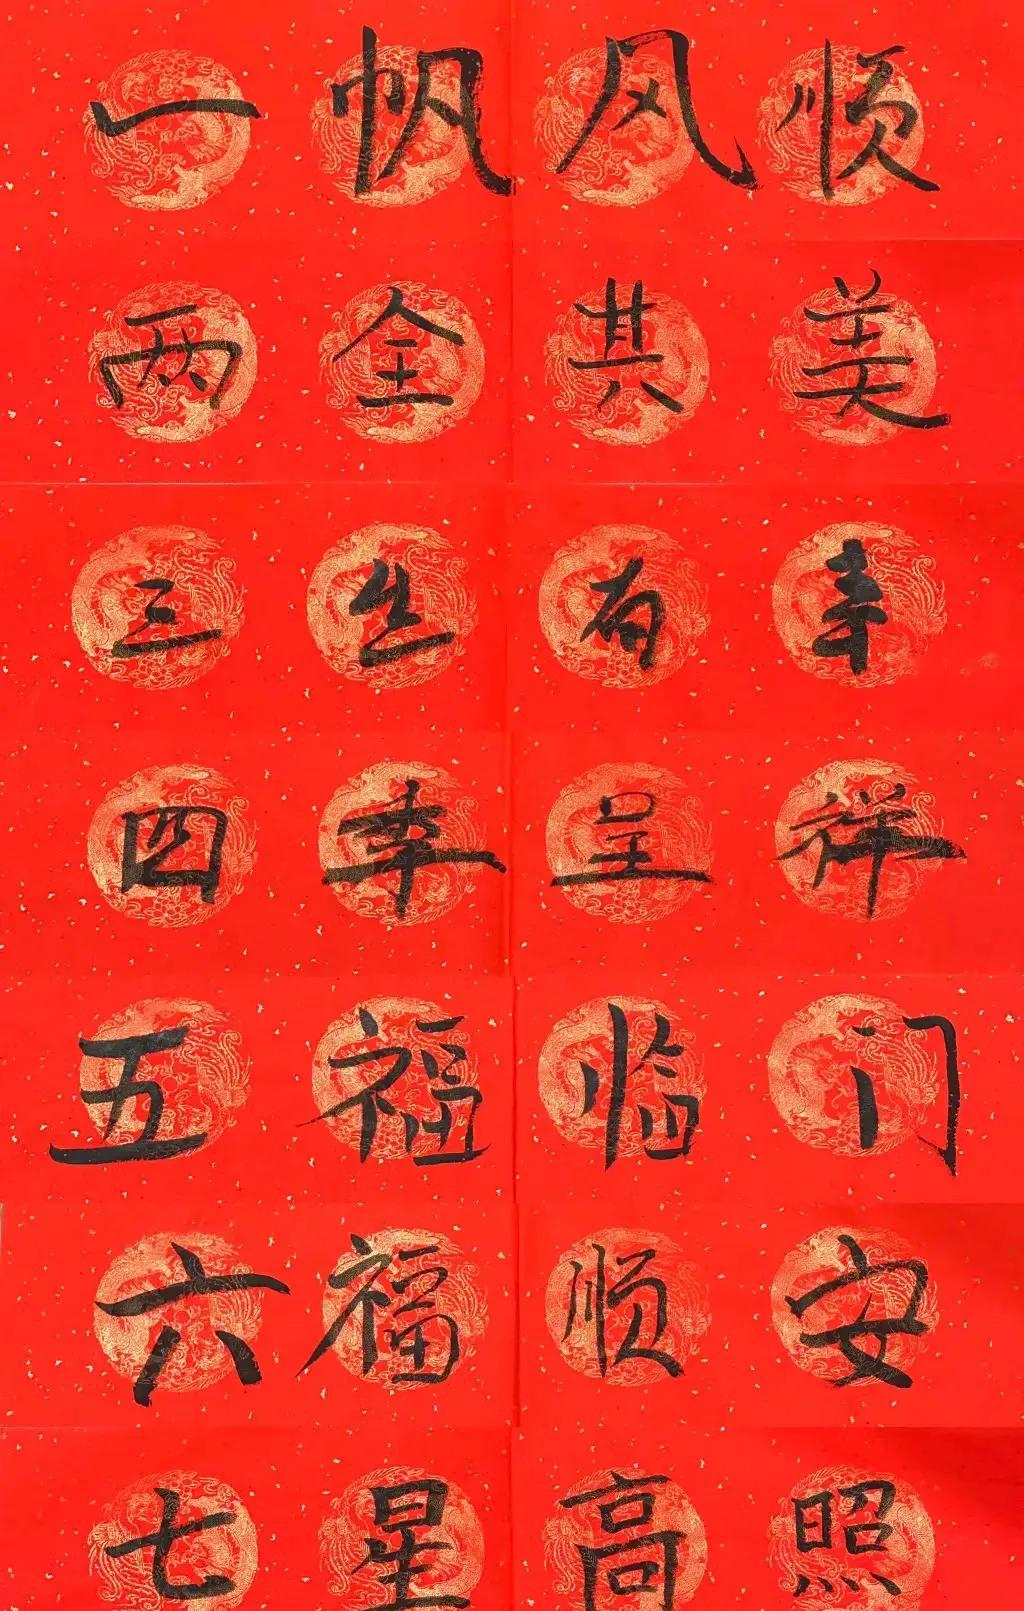 一帆风顺
两全其美
三生有幸
四季呈祥
五福临门
六福顺安
七星高照